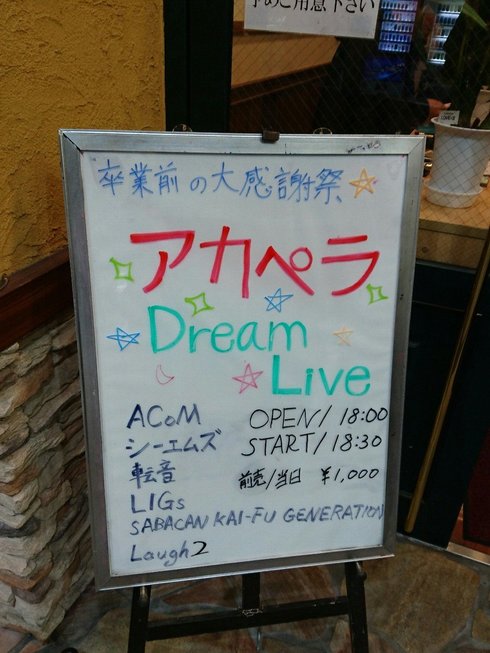 予めご用意下さい
卒業前の大感謝祭
アカペラ
Dream
Live
ACoM
シーエムズ
転音
LIGs
SABACAN KAI-FU GENERATION
Laugh2
OPEN/ 18:00
START/ 18:30
前売/当日 ¥1,000